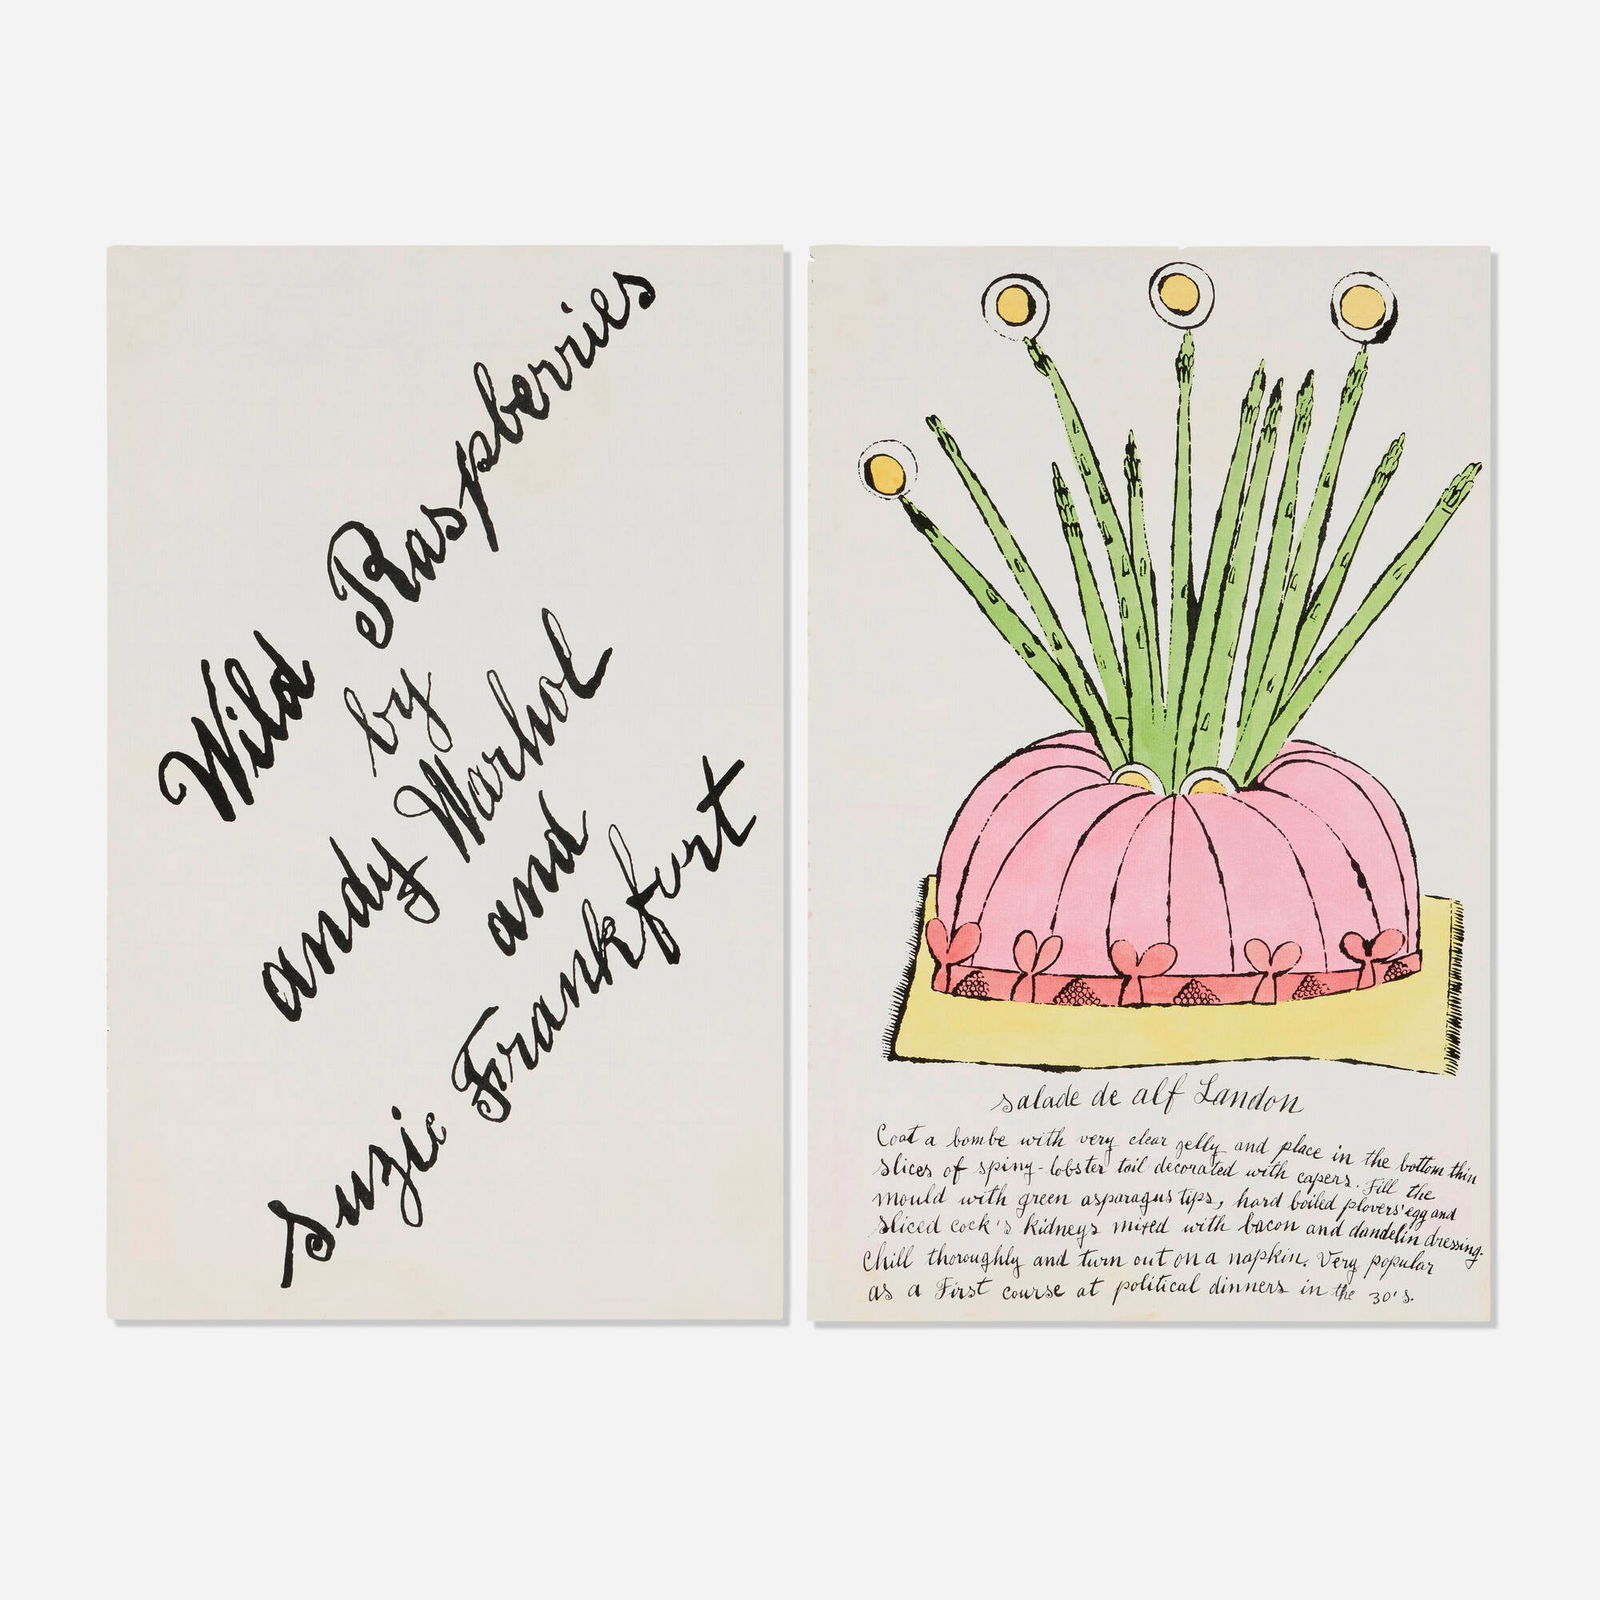 Wild Raspberries
by
andy Warhol
and
Suzie Frankfurt
salade de alf Landon
Coat a bombe with very clear jelly and place in the bottom thin
slices of spiny-lobster tail decorated with capers. Fill the
mould with green asparagus tips, hard boiled plovers' egg and
sliced cock's kidneys mixed with bacon and dandelin dressing.
Chill thoroughly and turn out on a napkin. Very popular
as a First course at political dinners in the 30's.